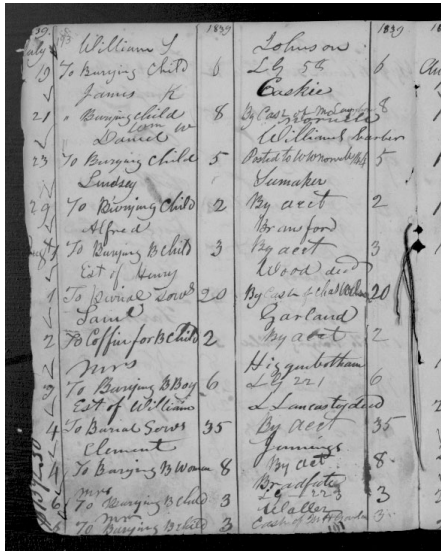 1839 1839
July William S Johnson
19 To Burying Child 6 LG 58 6
James K Caskie
21 " Burying child 8 By Cash of 8
Daniel W Williams
23 To Burying Child 5 Posted to 5
Lindsey Sumaker
29 To Burying Child 2 By acct 2
Alfred Bransford
To Burying B Child 3 By acct 3
Est of Henry Wood decd
1 To burial Serv 20 By Cash of 20
Saml Garland
2 To Coffin for B Child 2 By acct 2
Mrs Higginbotham
3 To Burying B Boy 6 LG 221 6
Est of William L Lancaster decd
4 To Burial Serv 35 By acct 35
Clement Jennings
4 To Burying B Woman 8 By act 8
Mrs Bradfute
6 To Burying B Child 3 LG 223 3
Mrs Waller
To Burying B Child 3 Cash of 3